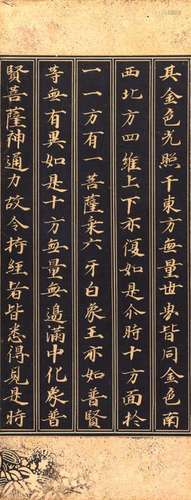 其金色光照于東方無量世界皆同金色南
西北方四維上下亦復如是尒時十方面於
一一方有一菩薩乘六牙白象王亦如普賢
等無有異如是十方無量無邊滿中化象普
賢菩薩神通力故令持經者皆悉得見是時